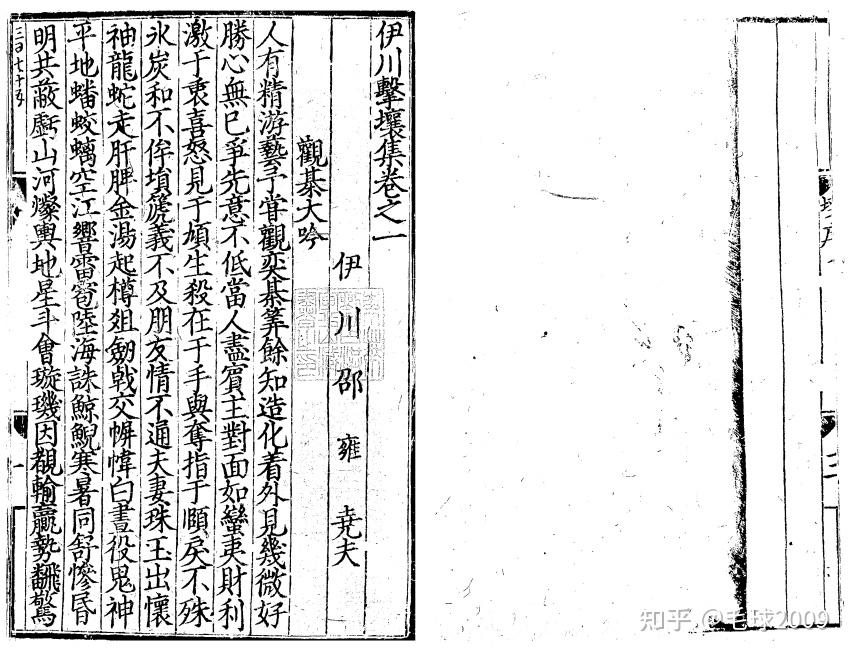 伊川擊壤集卷之一
伊川邵雍堯夫
觀棊大吟
人有精游藝予甞觀奕棊筭餘知造化着外見幾微好
勝心無已爭先意不低當人盡賓主對面如蠻夷財利
激于衷喜怒見于頄生殺在于手與奪指于頤戾不殊
氷炭和不侔塤篪義不及朋友情不通夫妻珠玉出懷
神龍蛇走肝脾金湯起樽爼劒戟交幈幃白晝役鬼神
平地蟠蛟螭空江響雷雹陸海誅鯨鯢寒暑同舒慘昏
明共蔽虧山河燦輿地星斗會璇璣因覩輸贏勢飜驚
三百七十五
一
知乎 @毛球2009